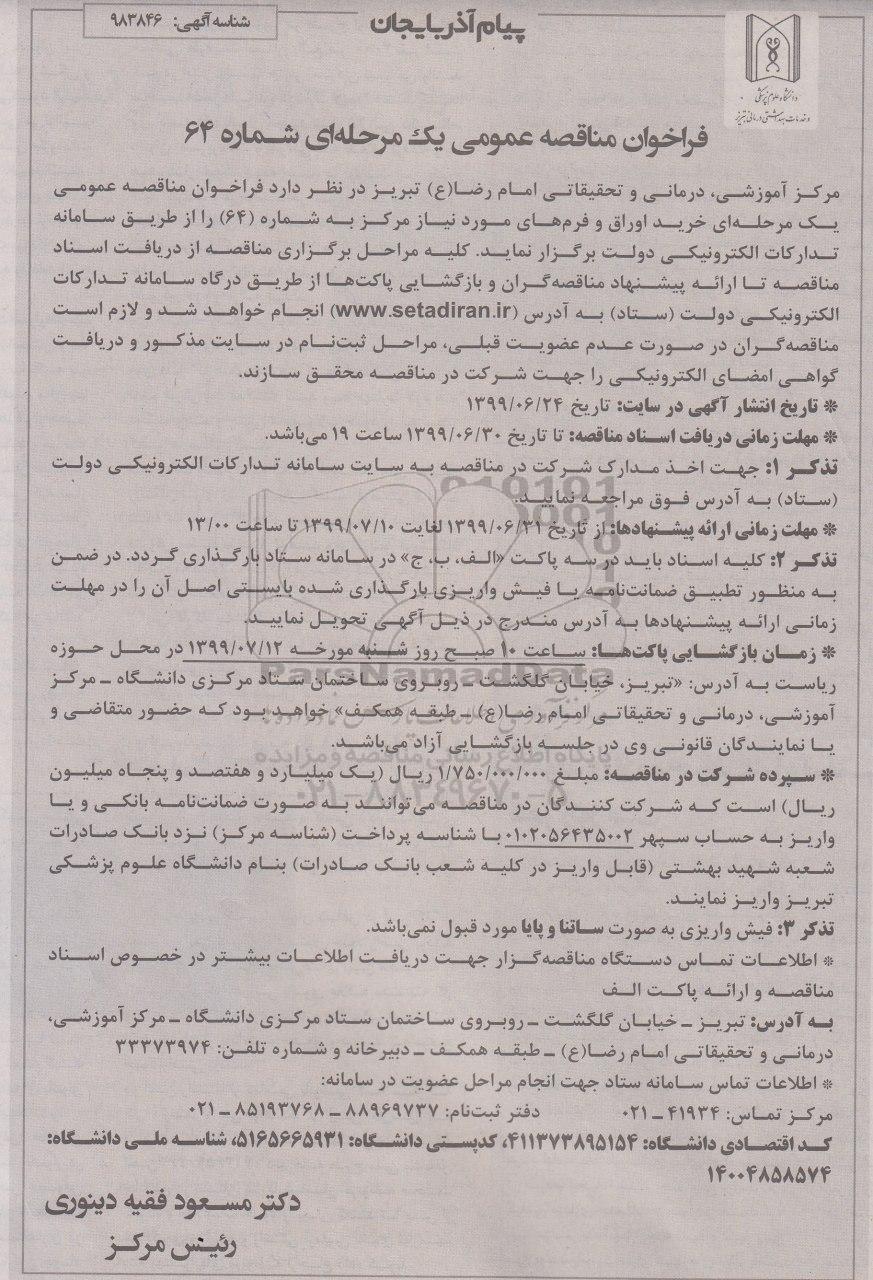 شناسه آگهی: ۹۸۳۸۴۶
پیام آذربایجان
دانشگاه علوم پزشکی
و خدمات بهداشتی درمانی تبریز
فراخوان مناقصه عمومی یک مرحله‌ای شماره ۶۴
مرکز آموزشی، درمانی و تحقیقاتی امام رضا(ع) تبریز در نظر دارد فراخوان مناقصه عمومی
یک مرحله‌ای خرید اوراق و فرم‌های مورد نیاز مرکز به شماره (۶۴) را از طریق سامانه
تدارکات الکترونیکی دولت برگزار نماید. کلیه مراحل برگزاری مناقصه از دریافت اسناد
مناقصه تا ارائه پیشنهاد مناقصه‌گران و بازگشایی پاکت‌ها از طریق درگاه سامانه تدارکات
الکترونیکی دولت (ستاد) به آدرس (www.setadiran.ir) انجام خواهد شد و لازم است
مناقصه‌گران در صورت عدم عضویت قبلی، مراحل ثبت‌نام در سایت مذکور و دریافت
گواهی امضای الکترونیکی را جهت شرکت در مناقصه محقق سازند.
* تاریخ انتشار آگهی در سایت: تاریخ ۱۳۹۹/۰۶/۲۴
* مهلت زمانی دریافت اسناد مناقصه: تا تاریخ ۱۳۹۹/۰۶/۳۰ ساعت ۱۹ می‌باشد.
تذکر ۱: جهت اخذ مدارک شرکت در مناقصه به سایت سامانه تدارکات الکترونیکی دولت
(ستاد) به آدرس فوق مراجعه نمایید.
* مهلت زمانی ارائه پیشنهادها: از تاریخ ۱۳۹۹/۰۶/۳۱ لغایت ۱۳۹۹/۰۷/۱۰ تا ساعت ۱۳/۰۰
تذکر ۲: کلیه اسناد باید در سه پاکت «الف، ب، ج» در سامانه ستاد بارگذاری گردد. در ضمن
به منظور تطبیق ضمانت‌نامه یا فیش واریزی بارگذاری شده بایستی اصل آن را در مهلت
زمانی ارائه پیشنهادها به آدرس مندرج در ذیل آگهی تحویل نمایید.
* زمان بازگشایی پاکت‌ها: ساعت ۱۰ صبح روز شنبه مورخه ۱۳۹۹/۰۷/۱۲ در محل حوزه
ریاست به آدرس: «تبریز، خیابان گلگشت ــ روبروی ساختمان ستاد مرکزی دانشگاه ــ مرکز
آموزشی، درمانی و تحقیقاتی امام رضا(ع) ــ طبقه همکف» خواهد بود که حضور متقاضی و
یا نمایندگان قانونی وی در جلسه بازگشایی آزاد می‌باشد.
* سپرده شرکت در مناقصه: مبلغ ۱/۷۵۰/۰۰۰/۰۰۰ ریال (یک میلیارد و هفتصد و پنجاه میلیون
ریال) است که شرکت کنندگان در مناقصه می‌توانند به صورت ضمانت‌نامه بانکی و یا
واریز به حساب سپهر ۰۱۰۲۰۵۶۴۳۵۰۰۲ با شناسه پرداخت (شناسه مرکز) نزد بانک صادرات
شعبه شهید بهشتی (قابل واریز در کلیه شعب بانک صادرات) بنام دانشگاه علوم پزشکی
تبریز واریز نمایند.
تذکر ۳: فیش واریزی به صورت ساتنا و پایا مورد قبول نمی‌باشد.
* اطلاعات تماس دستگاه مناقصه‌گزار جهت دریافت اطلاعات بیشتر در خصوص اسناد
مناقصه و ارائه پاکت الف
به آدرس: تبریز ــ خیابان گلگشت ــ روبروی ساختمان ستاد مرکزی دانشگاه ــ مرکز آموزشی،
درمانی و تحقیقاتی امام رضا(ع) ــ طبقه همکف ــ دبیرخانه و شماره تلفن: ۳۳۳۷۳۹۷۴
* اطلاعات تماس سامانه ستاد جهت انجام مراحل عضویت در سامانه:
مرکز تماس: ۴۱۹۳۴ ــ ۰۲۱ دفتر ثبت‌نام: ۸۸۹۶۹۷۳۷ ــ ۸۵۱۹۳۷۶۸ ــ ۰۲۱
کد اقتصادی دانشگاه: ۴۱۱۳۷۳۸۹۵۱۵۴، کدپستی دانشگاه: ۵۱۶۵۶۶۵۹۳۱، شناسه ملی دانشگاه:
۱۴۰۰۴۸۵۸۵۷۴
دکتر مسعود فقیه دینوری
رئیس مرکز
ParsNamadData
پایگاه اطلاع رسانی مناقصه و مزایده
۰۲۱-۸۸۳۴۹۶۷۰-۵